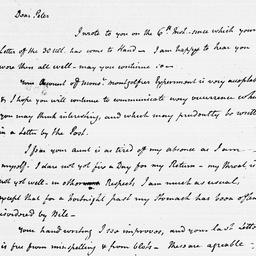 Dear Peter
I wrote to you on the 6th Inst. since which your
Letter of the 30 Ult. has come to Hand – I am happy to hear you
were then all well – may you continue so –
Your Account off Mons.r Montgolfiers Experiment is very acceptable
& I hope you will continue to communicate every occurrence wh
you may think interesting, and which may prudently be writt
in a Letter by the Post.
I fear your aunt is as tired of my absence as I am
myself. I dare not yet fix a Day for my Return – my throat is
not yet well. in other Respects I am much as usual,
except that for a Fortnight past my Stomach has been often
disordered by Bile –
Your hand writing I see improves, and your last Letter
is free from misspelling & from blots – These are agreeable